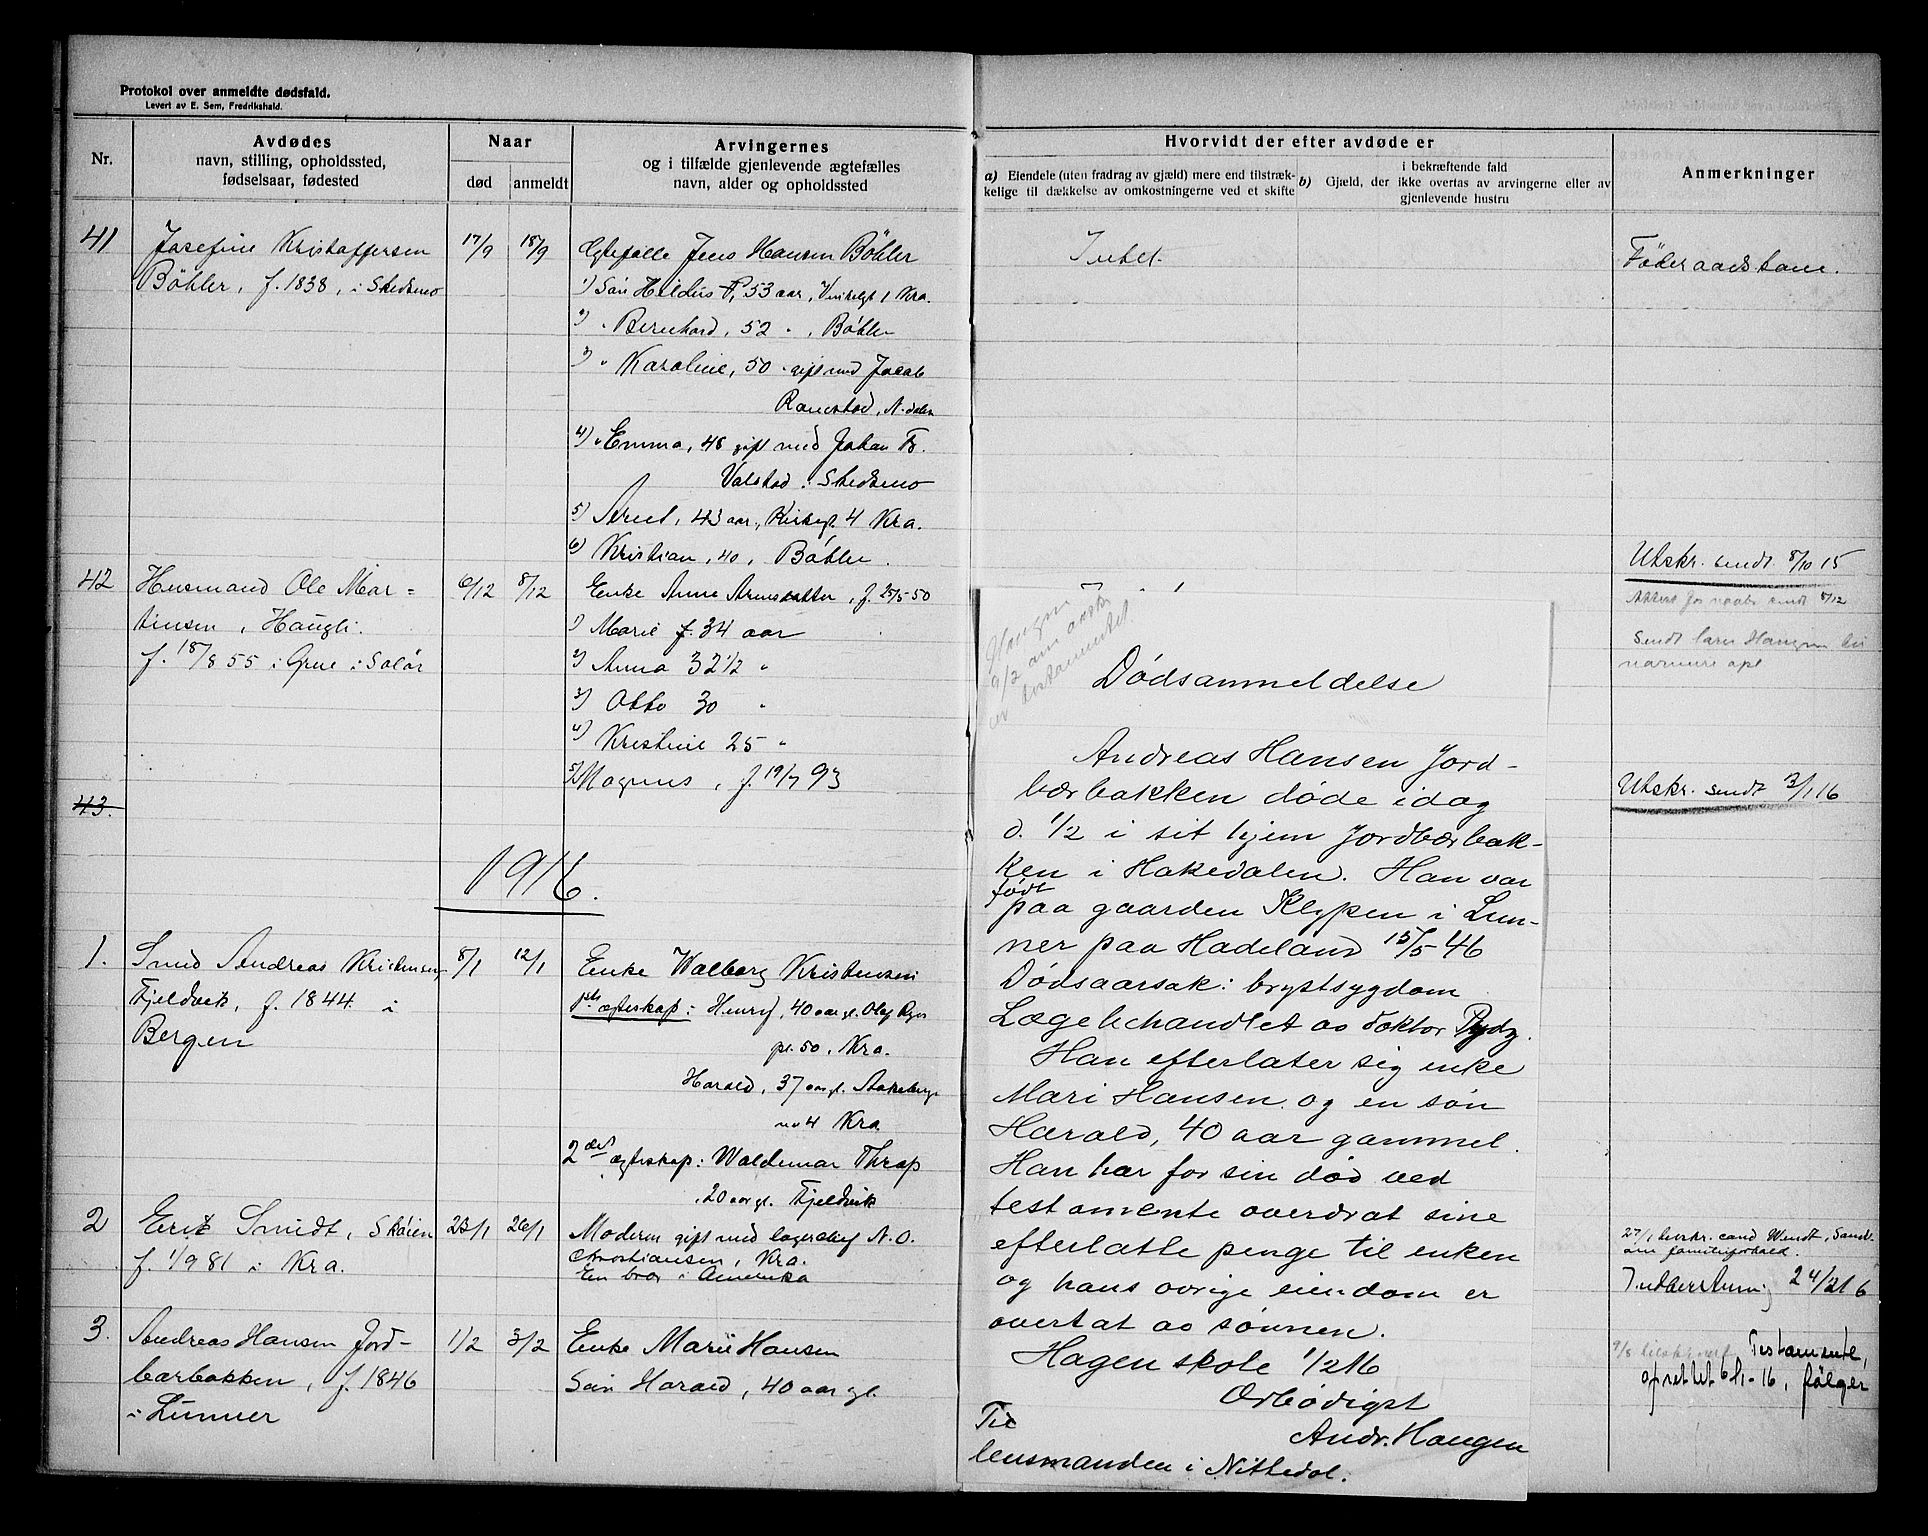 Protokol over anmeldte dødsfald.
Levert av E. Sem, Fredrikshald.
Nr.
Avdødes
navn, stilling, opholdssted,
fødselsaar, fødested
Naar
død
anmeldt
Arvingernes
og i tilfælde gjenlevende ægtefælles
navn, alder og opholdssted
Hvorvidt der efter avdøde er
a) Eiendele (uten fradrag av gjæld) mere end tilstræk-
kelige til dækkelse av omkostningerne ved et skifte
i bekræftende fald
b) Gjæld, der ikke overtas av arvingerne eller av
gjenlevende hustru
Anmerkninger
41
Josefine Kristoffersen
Bøhler, f. 1838, i Skedsmo
17/9
18/9
Egtefælle Jens Hansen Bøhler
1) Søn Heldus P, 53 aar, 1 Kra.
2) " Bernhard, 52 " , Bøhler
3) " Karoline, 50 " gift med Jacob
Ramstad, N.dalen
4) " Emma, 48 gift med Johan Fr.
Valstad i Skedsmo
5) Arnet, 43 aar, Kirkegt. 4 Kra.
6) Kristian, 40, Bøhler.
Intet.
Føderaadskone.
Utskr. sendt 8/10 15
42
Husmand Ole Mar=
tinsen, Haugli.
f. 18/8 55 i Grue i Solør
6/12
8/12
Enke Anne Arnesdatter, f. 25/5-50
1) Marie f. 34 aar
2) Anna 32 1/2 "
3) Otto 30 "
4) Kristine 25 "
5) Magnus, f. 19/7 93
sendt 8/12
Sendt Haugen
Utskr. sendt 3/1 16
43.
1916.
1.
Smed Andreas Kristensen,
Fjeldvik, f. 1844 i
Bergen
8/1
12/1
Enke Walborg Kristensen
1ste egteskap: Henry, 40 aar gl. Olaf Ryes
pl. 50, Kra.
Harald, 37 aar gl. Akebergv
no 4 Kra
2det egteskap: Waldemar Thrap
, 20 aar gl. Fjeldvik
2
Erik Smidt, Skøien
f. 1/9 81 i Kra.
23/1
26/1
Moderen gift med lagerchef N. O.
Christiansen, Kra.
En bror i Amerika
27/1 cand Wendt, Sand.
om familieforhold.
Indberetning 24/2 16
3.
Andreas Hansen Jord-
bærbakken, f. 1846
i Lunner
1/2
3/2
Enke Marie Hansen
Søn Harald, 40 aar gl.
Testamente,
oprettet 6/1-16, følger
Haugen
9/2 om
testamentet.
Dødsanmeldelse
Andreas Hansen Jord-
bærbakken døde idag
d. 1/2 i sit hjem Jordbærbak-
ken i Hakedalen. Han var
født
paa gaarden Klypen i Lun-
ner paa Hadeland 15/5 46
Dødsaarsak: brystsygdom
Lægebehandlet av doktor Rydg.
Han efterlater sig enke
Mari Hansen og en søn
Harald, 40 aar gammel.
Han har før sin død ved
testamente overdrat sine
efterlatte penge til enken
og hans øvrige eiendom er
overtat av sønnen.
Hagen skole 1/2 16
Ærbødigst
Andr. Haugen
Til
lensmanden i Nittedal.